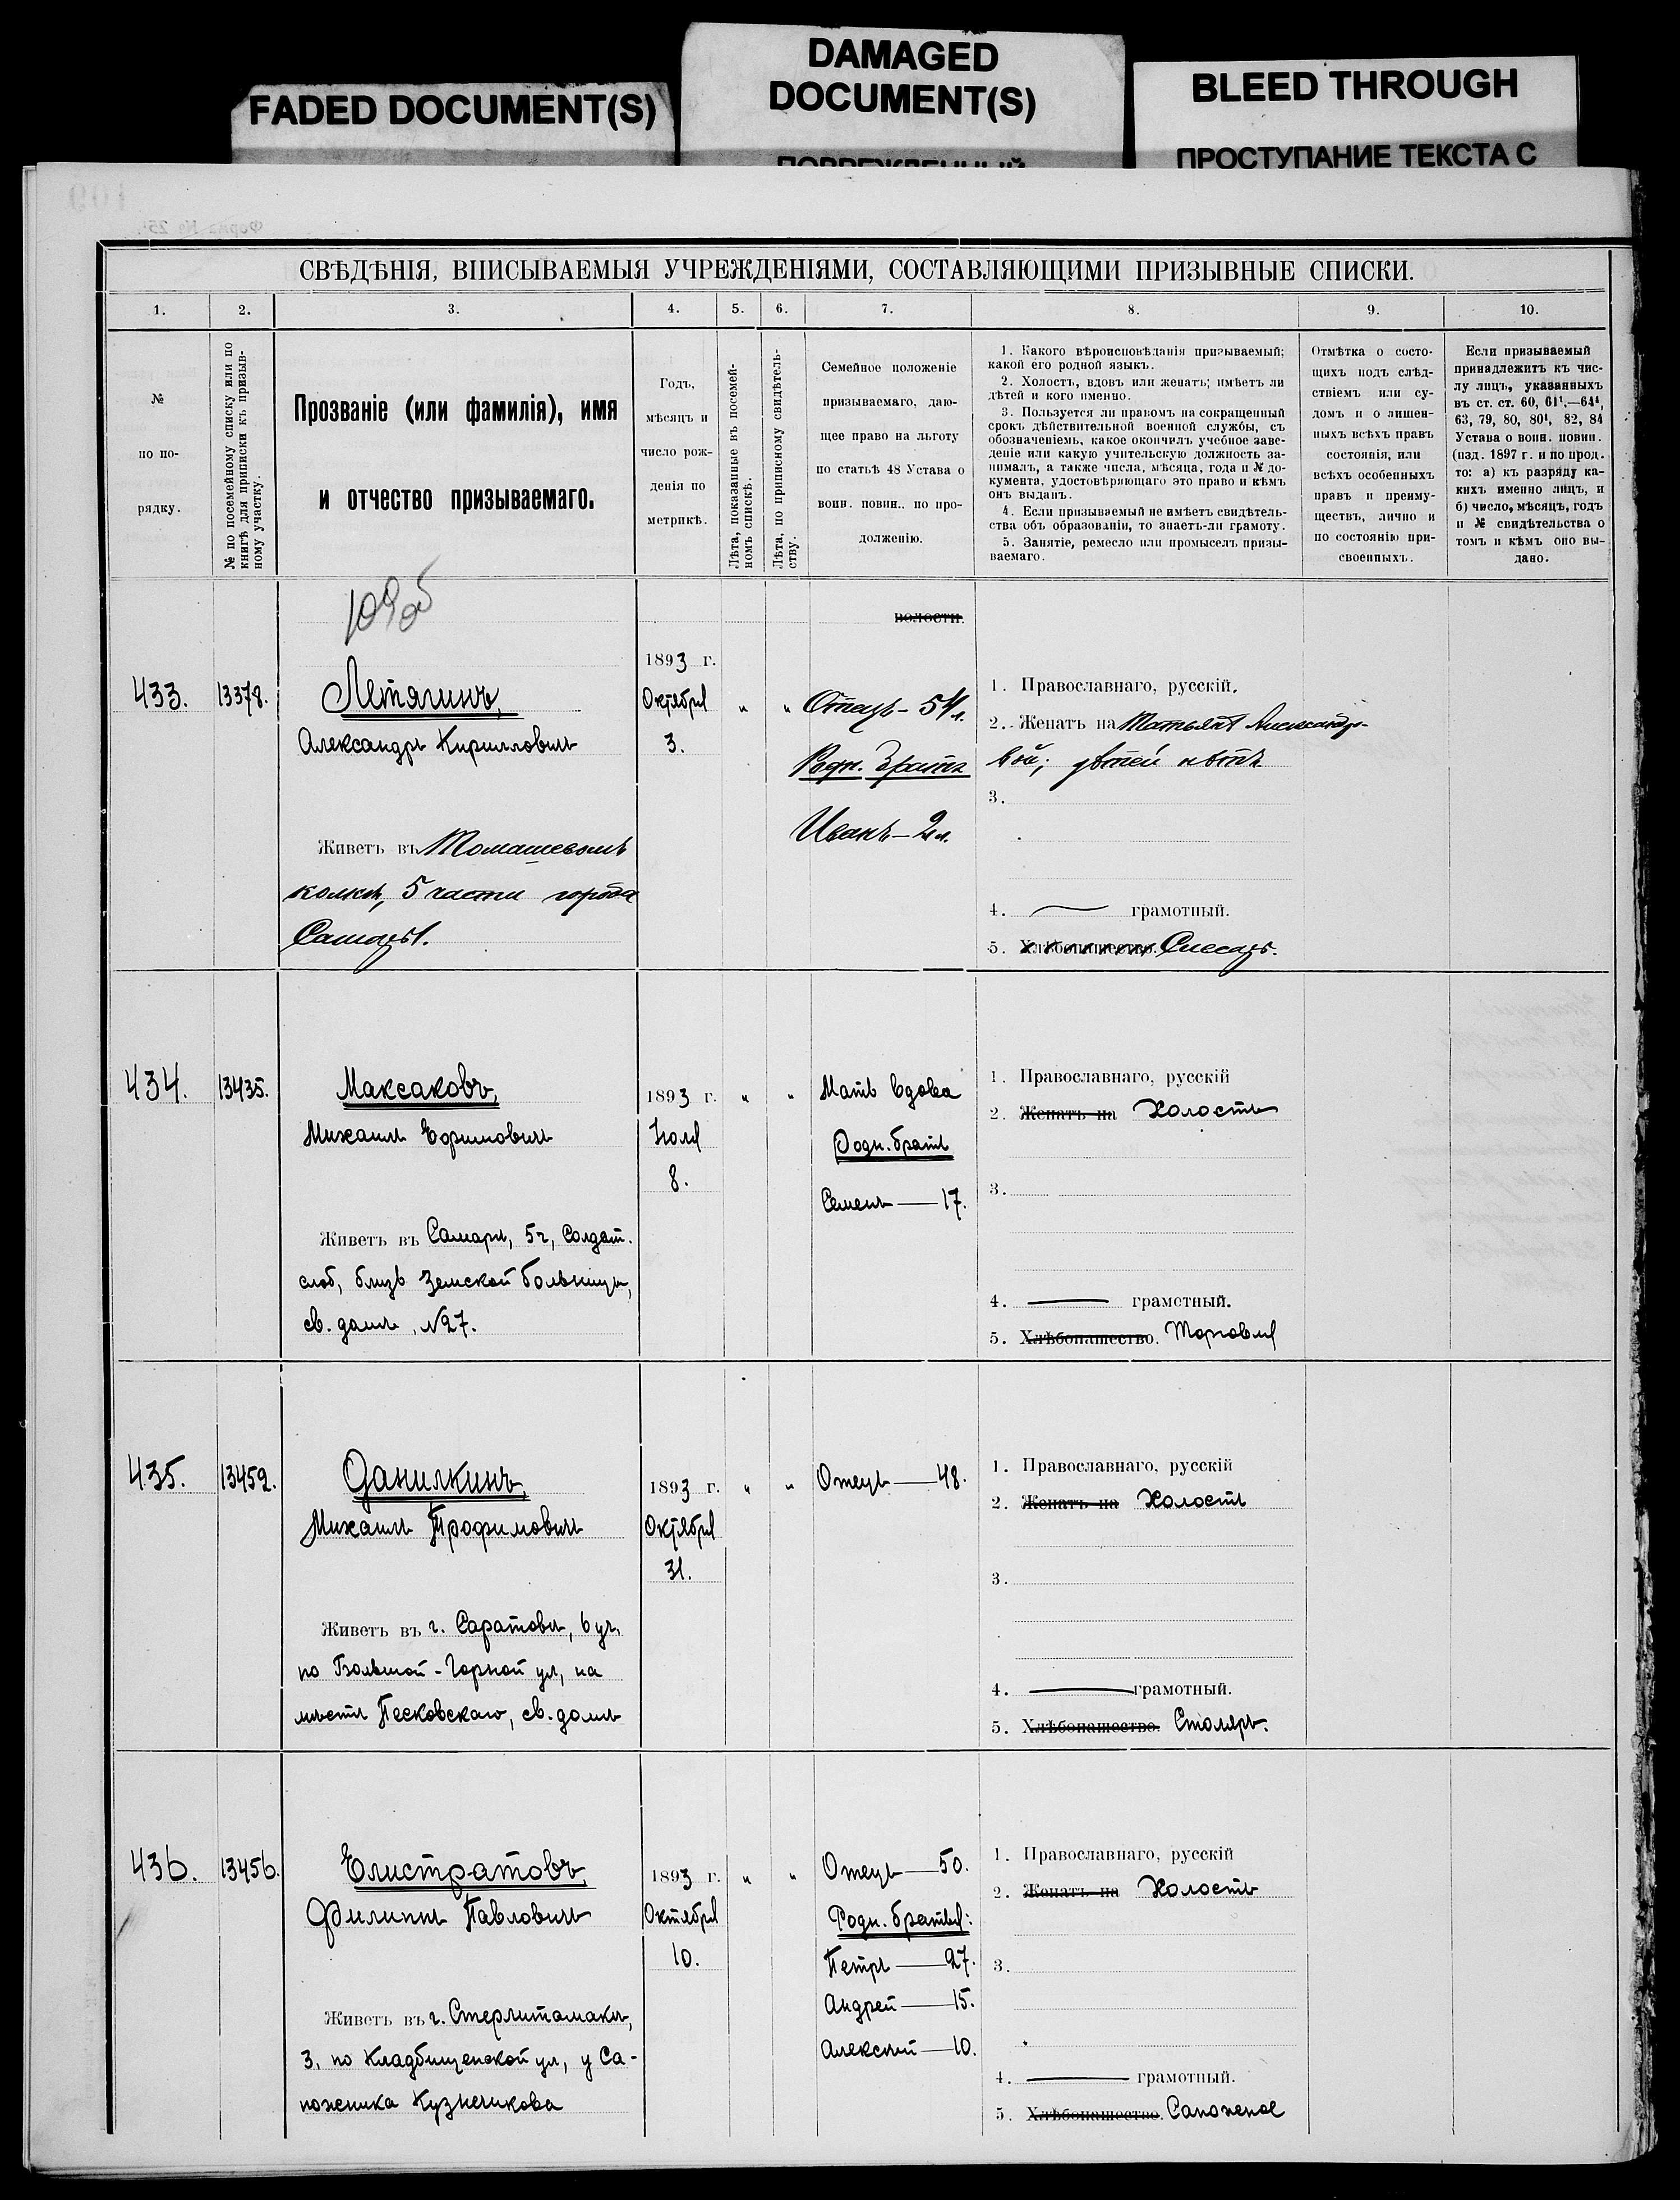 FADED DOCUMENT(S)
DAMAGED
DOCUMENT(S)
BLEED THROUGH
ПРОСТУПАНИЕ ТЕКСТА С
СВѢДѢНІЯ, ВПИСЫВАЕМЫЯ УЧРЕЖДЕНІЯМИ, СОСТАВЛЯЮЩИМИ ПРИЗЫВНЫЕ СПИСКИ.
1. 2. 3. 4. 5. 6. 7. 8. 9. 10.
№
по по-
рядку.
№ по посемейному списку или по
книгѣ для приписки къ призыв-
ному участку.
Прозваніе (или фамилія), имя
и отчество призываемаго.
Годъ,
мѣсяцъ и
число рож-
денія по
метрикѣ.
Лѣта, показанные въ посемей-
номъ спискѣ.
Лѣта, по приписному свидѣтель-
ству.
Семейное положеніе
призываемаго, даю-
щее право на льготу
по статьѣ 48 Устава о
воин. повин.. по про-
долженію.
1. Какого вѣроисповѣданія призываемый;
какой его родной языкъ.
2. Холостъ, вдовъ или женатъ; имѣетъ ли
дѣтей и кого именно.
3. Пользуется ли правомъ на сокращенный
срокъ дѣйствительной военной службы, съ
обозначеніемъ, какое окончилъ учебное заве-
деніе или какую учительскую должность за-
нималъ, а также числа, мѣсяца, года и № до-
кумента, удостовѣряющаго это право и кѣмъ
онъ выданъ.
4. Если призываемый не имѣетъ свидѣтель-
ства объ образованіи, то знаетъ-ли грамоту.
5. Занятіе, ремесло или промыселъ призы-
ваемаго.
Отмѣтка о состо-
щихъ подъ слѣд-
ствіемъ или су-
домъ и о лишен-
ныхъ всѣхъ правъ
состоянія, или
всѣхъ особенныхъ
правъ и преиму-
ществъ, лично и
по состоянію при-
своенныхъ.
Если призываемый
принадлежитъ къ чис-
лу лицъ, указанныхъ
въ ст. ст. 60, 61¹,—64⁴,
63, 79, 80, 80¹, 82, 84
Устава о воин. повин.
(изд. 1897 г. и по прод.
то: а) къ разряду ка-
кихъ именно лицъ, и
б) число, мѣсяцъ, годъ
и № свидѣтельства о
томъ и кѣмъ оно вы-
дано.
109об
волости.
433.
13378.
Летягинъ,
Александръ Кирилловичъ
Живетъ въ Томашевомъ
колкѣ, 5 части города
Самары.
1893 г.
Октября
3.
" "
Отецъ - 54 л.
Родн. братъ
Иванъ - 2 л.
1. Православнаго, русскій.
2. Женатъ на Татьянѣ Александро-
вой; дѣтей нѣтъ
3.
4. — грамотный.
5. Хлѣбопашество. Слесарь.
434.
13435.
Максаковъ,
Михаилъ Ефимовичъ
Живетъ въ Самарѣ, 5 ч, Солдат.
слоб, близъ Земской больницы,
св. домъ, №27.
1893 г.
Іюля
8.
" "
Мать вдова
Родн. братъ
Семенъ — 17.
1. Православнаго, русскій
2. Женатъ на Холостъ
3.
4. — грамотный.
5. Хлѣбопашество. Торговля
435.
13452.
Данилкинъ,
Михаилъ Трофимовичъ
Живетъ въ г. Саратовѣ, 6 уч,
по Большой-Горной ул, на
мѣстѣ Песковскаго, св. домъ
1893 г.
Октября
31.
" "
Отецъ — 48.
1. Православнаго, русскій
2. Женатъ на Холостъ
3.
4. — грамотный.
5. Хлѣбопашество. Столяръ.
436.
13456.
Елистратовъ,
Филиппъ Павловичъ
Живетъ въ г. Стерлитамакѣ,
3, по Кладбищенской ул, у Са-
пожника Кузнечикова
1893 г.
Октября
10.
" "
Отецъ — 50.
Родн. братья:
Петръ — 27.
Андрей — 15.
Алексѣй — 10.
1. Православнаго, русскій
2. Женатъ на Холостъ
3.
4. — грамотный.
5. Хлѣбопашество. Сапожное